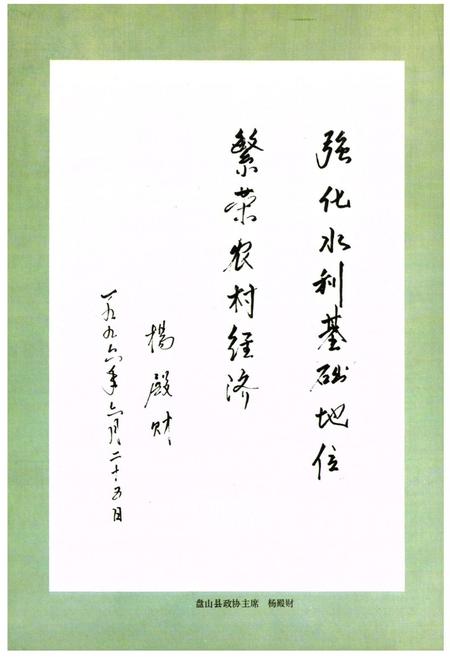 强化水利基础地位
繁荣农村经济
杨殿财
一九九六年六月二十五日
盘山县政协主席 杨殿财